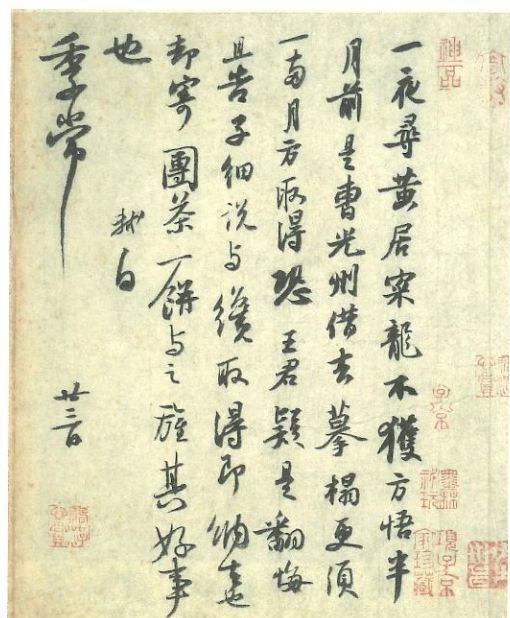 一夜尋黃居寀龍不獲方悟半
月前是曹光州借去摹搨更須
一兩月方取得恐王君疑是翻悔
且告子細說與纔取得即納去也
却寄團茶一餅與之旌其好事
也
軾白
季常
廿三日
神品
子京
墨林秘玩
項子京家珍藏